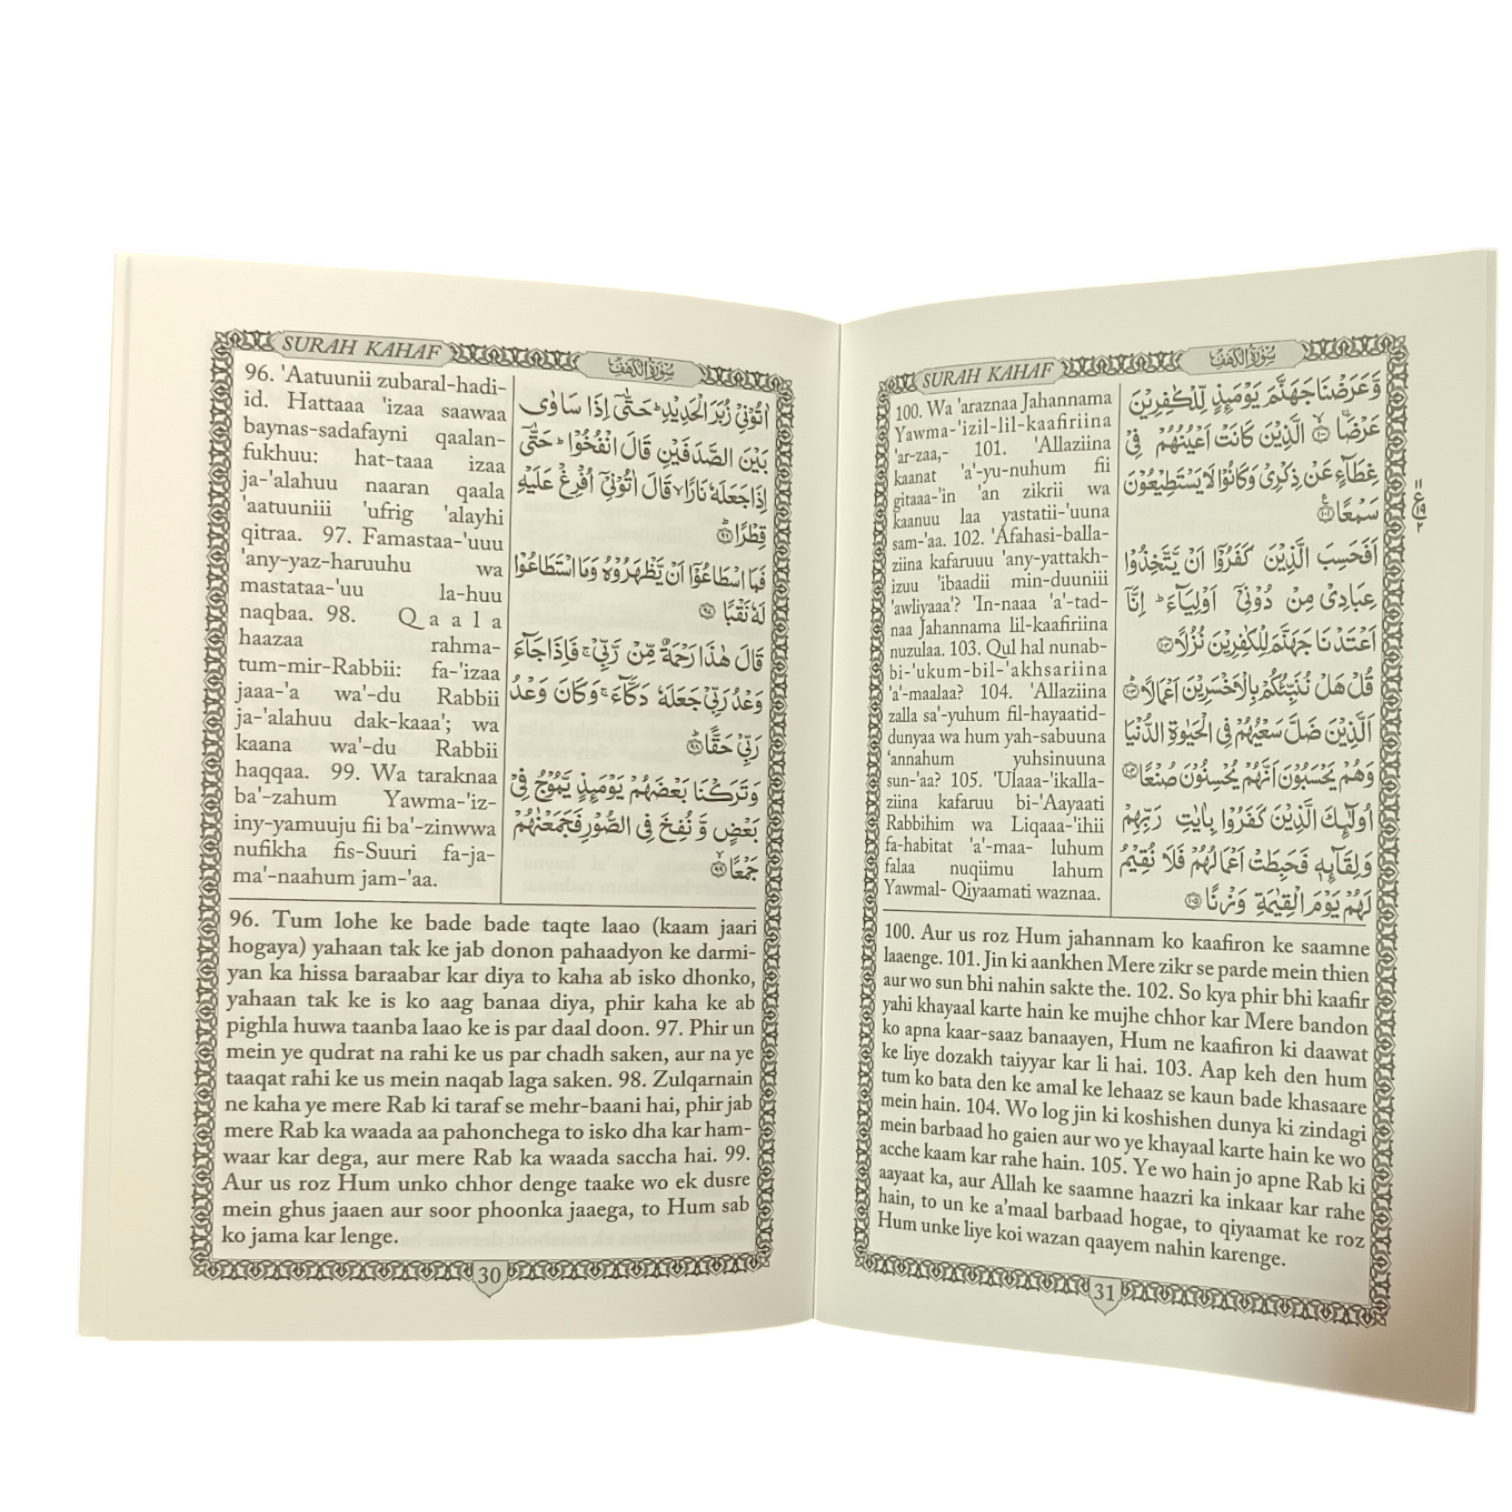 SURAH KAHAF
سُوْرَةُ الْكَهْفِ
96. 'Aatuunii zubaral-hadi-
id. Hattaaa 'izaa saawaa
baynas-sadafayni qaalan-
fukhuu: hat-taaa izaa
ja-'alahuu naaran qaala
'aatuuniii 'ufrig 'alayhi
qitraa. 97. Famastaa-'uuu
'any-yaz-haruuhu wa
mastataa-'uu la-huu
naqbaa. 98. Q a a l a
haazaa rahma-
tum-mir-Rabbii: fa-'izaa
jaaa-'a wa'-du Rabbii
ja-'alahuu dak-kaaa'; wa
kaana wa'-du Rabbii
haqqaa. 99. Wa taraknaa
ba'-zahum Yawma-'iz-
iny-yamuuju fii ba'-zinwwa
nufikha fis-Suuri fa-ja-
ma'-naahum jam-'aa.
اٰتُوْنِيْ زُبَرَ الْحَدِيْدِ ؕ حَتّٰۤى اِذَا سَاوٰى
بَيْنَ الصَّدَفَيْنِ قَالَ انْفُخُوْا ؕ حَتّٰۤى
اِذَا جَعَلَهٗ نَارًا ۙ قَالَ اٰتُوْنِيْۤ اُفْرِغْ عَلَيْهِ
قِطْرًا ۝۹۶
فَمَا اسْطَاعُوْۤا اَنْ يَّظْهَرُوْهُ وَمَا اسْتَطَاعُوْا
لَهٗ نَقْبًا ۝۹۷
قَالَ هٰذَا رَحْمَةٌ مِّنْ رَّبِّيْ ۚ فَاِذَا جَآءَ
وَعْدُ رَبِّيْ جَعَلَهٗ دَكَّآءَ ۚ وَكَانَ وَعْدُ
رَبِّيْ حَقًّا ۝۹۸
وَتَرَكْنَا بَعْضَهُمْ يَوْمَئِذٍ يَّمُوْجُ فِيْ
بَعْضٍ وَّ نُفِخَ فِي الصُّوْرِ فَجَمَعْنٰهُمْ
جَمْعًا ۝۹۹
96. Tum lohe ke bade bade taqte laao (kaam jaari
hogaya) yahaan tak ke jab donon pahaadyon ke darmi-
yan ka hissa baraabar kar diya to kaha ab isko dhonko,
yahaan tak ke is ko aag banaa diya, phir kaha ke ab
pighla huwa taanba laao ke is par daal doon. 97. Phir un
mein ye qudrat na rahi ke us par chadh saken, aur na ye
taaqat rahi ke us mein naqab laga saken. 98. Zulqarnain
ne kaha ye mere Rab ki taraf se mehr-baani hai, phir jab
mere Rab ka waada aa pahonchega to isko dha kar ham-
waar kar dega, aur mere Rab ka waada saccha hai. 99.
Aur us roz Hum unko chhor denge taake wo ek dusre
mein ghus jaaen aur soor phoonka jaaega, to Hum sab
ko jama kar lenge.
30
SURAH KAHAF
سُوْرَةُ الْكَهْفِ
100. Wa 'araznaa Jahannama
Yawma-'izil-lil-kaafiriina
'ar-zaa,- 101. 'Allaziina
kaanat 'a'-yu-nuhum fii
gitaaa-'in 'an zikrii wa
kaanuu laa yastatii-'uuna
sam-'aa. 102. 'Afahasi-balla-
ziina kafaruuu 'any-yattakh-
izuu 'ibaadii min-duuniii
'awliyaaa'? 'In-naaa 'a'-tad-
naa Jahannama lil-kaafiriina
nuzulaa. 103. Qul hal nunab-
bi-'ukum-bil-'akhsariina
'a'-maalaa? 104. 'Allaziina
zalla sa'-yuhum fil-hayaatid-
dunyaa wa hum yah-sabuuna
'annahum yuhsinuuna
sun-'aa? 105. 'Ulaaa-'ikalla-
ziina kafaruu bi-'Aayaati
Rabbihim wa Liqaaa-'ihii
fa-habitat 'a'-maa- luhum
falaa nuqiimu lahum
Yawmal- Qiyaamati waznaa.
وَّعَرَضْنَا جَهَنَّمَ يَوْمَئِذٍ لِّلْكٰفِرِيْنَ
عَرْضًا ۝۱۰۰ الَّذِيْنَ كَانَتْ اَعْيُنُهُمْ فِيْ
غِطَآءٍ عَنْ ذِكْرِيْ وَكَانُوْا لَا يَسْتَطِيْعُوْنَ
سَمْعًا ۝۱۰۱
اَفَحَسِبَ الَّذِيْنَ كَفَرُوْۤا اَنْ يَّتَّخِذُوْا
عِبَادِيْ مِنْ دُوْنِيْۤ اَوْلِيَآءَ ؕ اِنَّاۤ
اَعْتَدْنَا جَهَنَّمَ لِلْكٰفِرِيْنَ نُزُلًا ۝۱۰۲
قُلْ هَلْ نُنَبِّئُكُمْ بِالْاَخْسَرِيْنَ اَعْمَالًا ۝۱۰۳
اَلَّذِيْنَ ضَلَّ سَعْيُهُمْ فِي الْحَيٰوةِ الدُّنْيَا
وَهُمْ يَحْسَبُوْنَ اَنَّهُمْ يُحْسِنُوْنَ صُنْعًا ۝۱۰۴
اُولٰٓئِكَ الَّذِيْنَ كَفَرُوْا بِاٰيٰتِ رَبِّهِمْ
وَلِقَآئِهٖ فَحَبِطَتْ اَعْمَالُهُمْ فَلَا نُقِيْمُ
لَهُمْ يَوْمَ الْقِيٰمَةِ وَزْنًا ۝۱۰۵
100. Aur us roz Hum jahannam ko kaafiron ke saamne
laaenge. 101. Jin ki aankhen Mere zikr se parde mein thien
aur wo sun bhi nahin sakte the. 102. So kya phir bhi kaafir
yahi khayaal karte hain ke mujhe chhor kar Mere bandon
ko apna kaar-saaz banaayen, Hum ne kaafiron ki daawat
ke liye dozakh taiyyar kar li hai. 103. Aap keh den hum
tum ko bata den ke amal ke lehaaz se kaun bade khasaare
mein hain. 104. Wo log jin ki koshishen dunya ki zindagi
mein barbaad ho gaien aur wo ye khayaal karte hain ke wo
acche kaam kar rahe hain. 105. Ye wo hain jo apne Rab ki
aayaat ka, aur Allah ke saamne haazri ka inkaar kar rahe
hain, to un ke a'maal barbaad hogae, to qiyaamat ke roz
Hum unke liye koi wazan qaayem nahin karenge.
31